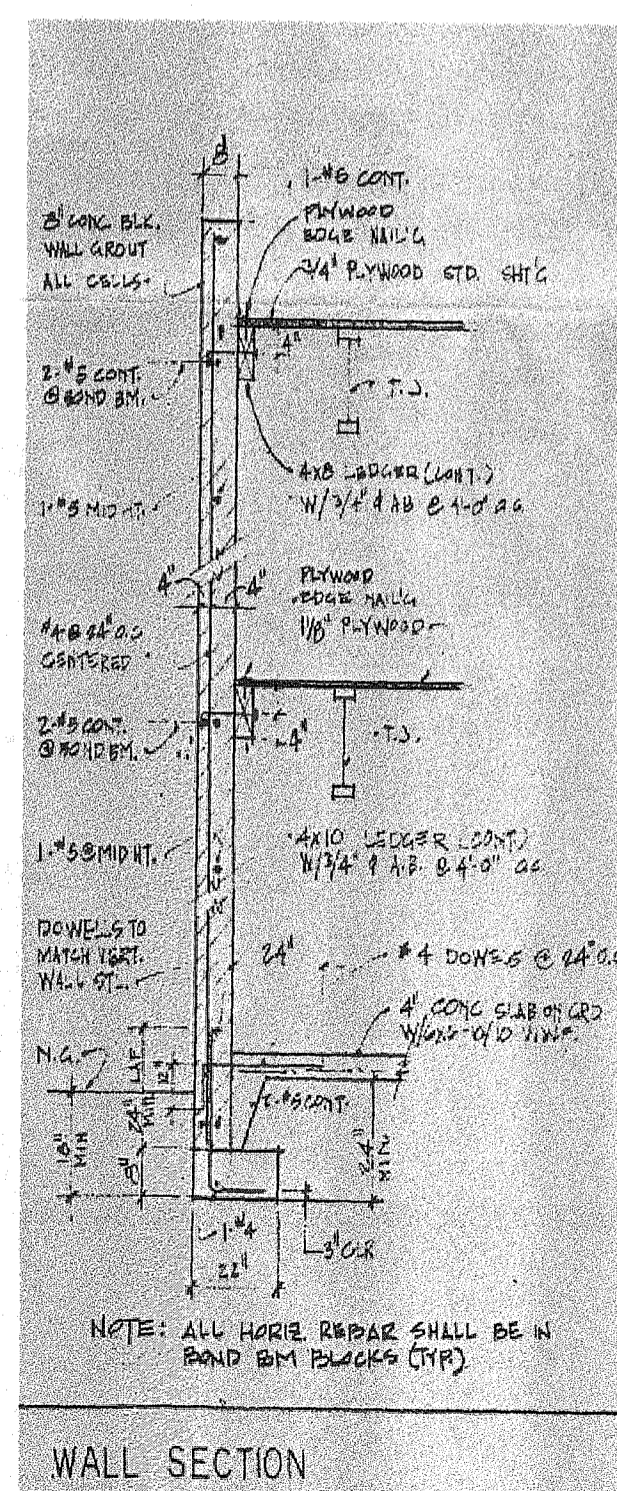 8"
1-#5 CONT.
8" CONC. BLK.
WALL GROUT
ALL CELLS
PLYWOOD
EDGE NAIL'G
3/4" PLYWOOD STD. SHT'G
4"
2-#5 CONT.
@ BOND BM.
T.J.
4X8 LEDGER (CONT.)
W/ 3/4" φ AB @ 4'-0" O.C.
1-#5 MID HT.
4"
4"
PLYWOOD
EDGE NAIL'G
1 1/8" PLYWOOD
#4 @ 24" O.C
CENTERED
2-#5 CONT.
@ BOND BM.
4"
T.J.
1-#5 @ MID HT.
4X10 LEDGER (CONT.)
W/ 3/4" φ A.B. @ 4'-0" O.C.
DOWELS TO
MATCH VERT.
WALL ST
24"
#4 DOWELS @ 24" O.C
4" CONC SLAB ON GRD
N.G.
LAP
12"
24"
MIN
#5 CONT.
18"
MIN
8"
24"
MIN.
1-#4
3" CLR
22"
NOTE: ALL HORIZ. REBAR SHALL BE IN
BOND BM BLOCKS (TYP.)
WALL SECTION